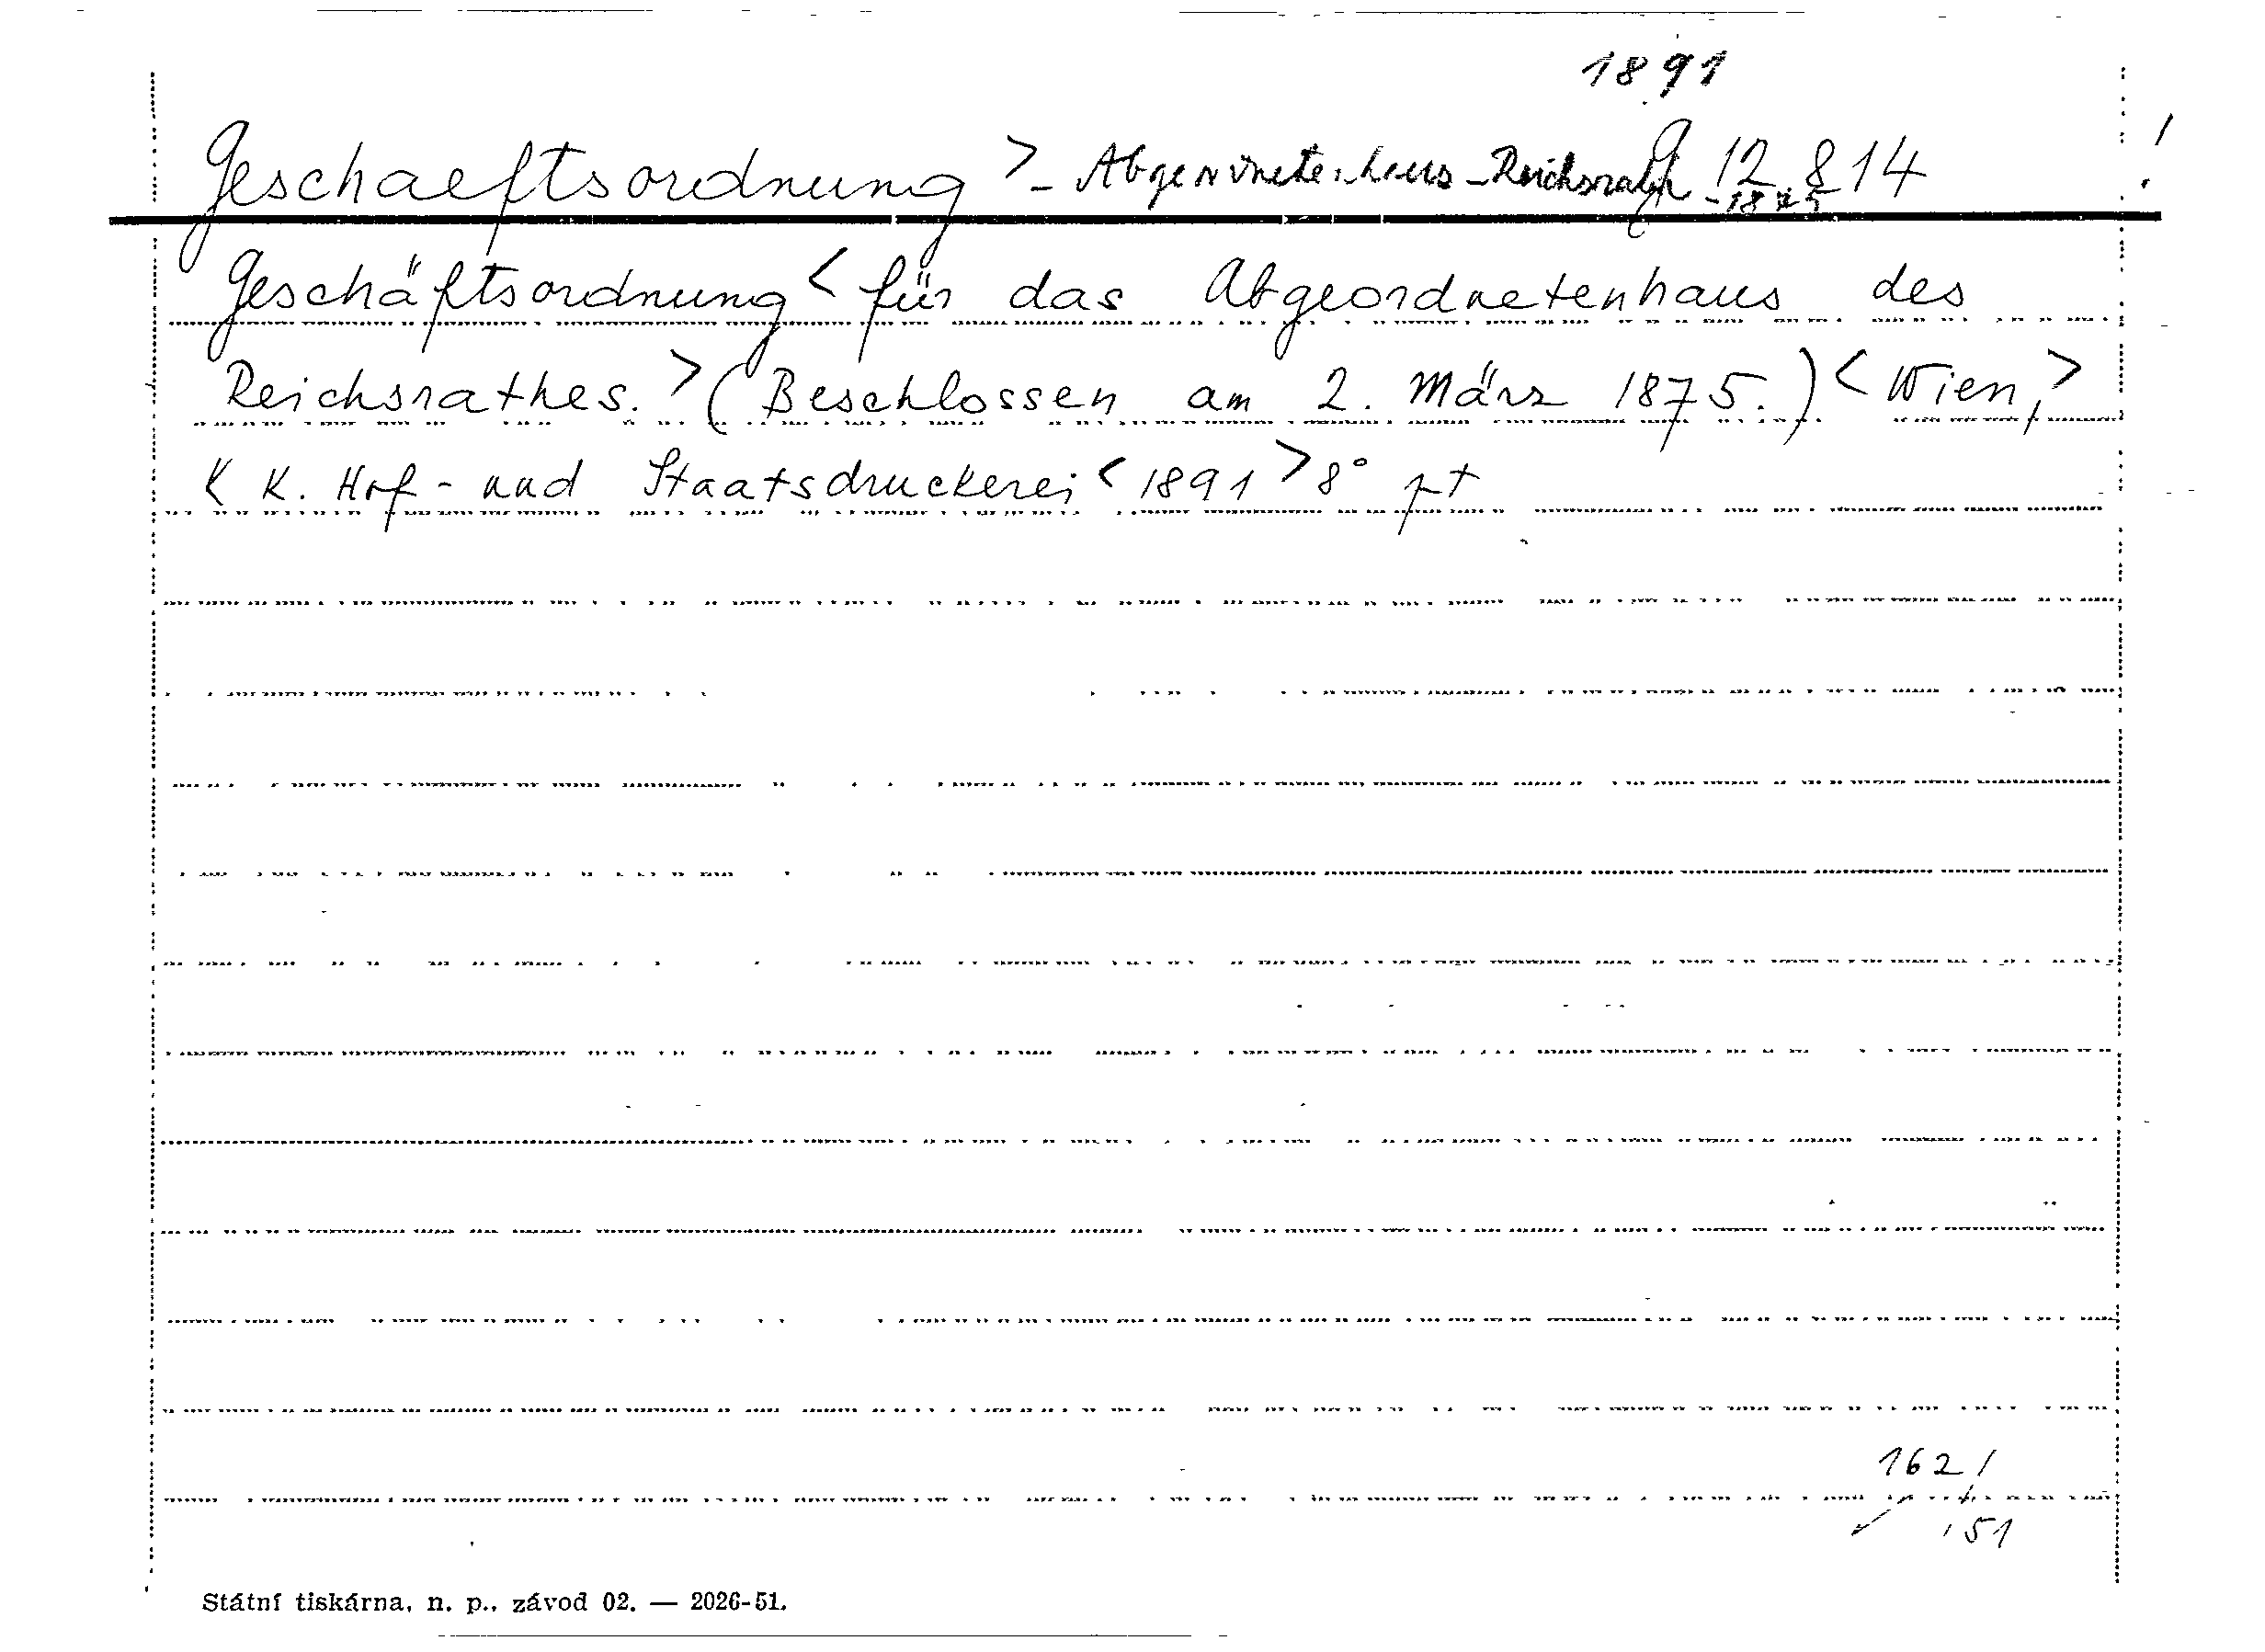 1891
Geschaeftsordnung > - Abgeordnetenhaus - Reichsrath - 1875 g 12 814 !
Geschäftsordnung < für das Abgeordnetenhaus des
Reichsrathes. > (Beschlossen am 2. März 1875.) < Wien, >
K K. Hof- und Staatsdruckerei < 1891 > 8°
162/
/51
Státní tiskárna, n. p., závod 02. — 2026-51.